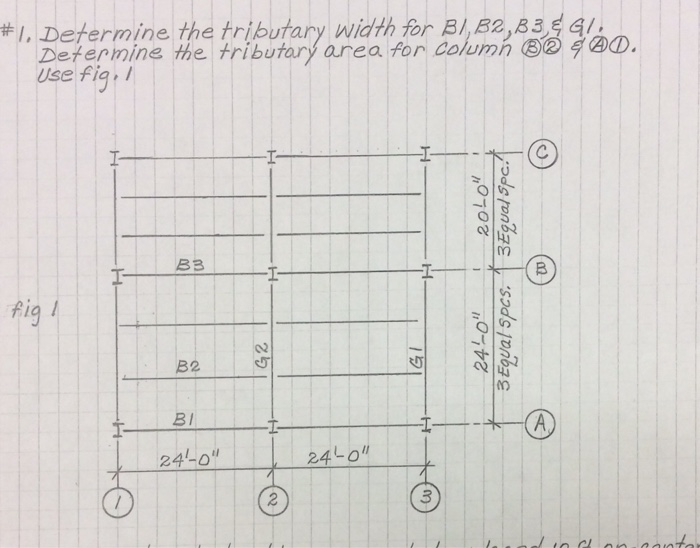 #1. Determine the tributary width for B1, B2, B3, & G1.
Determine the tributary area for column Ⓑ② & Ⓐ①.
Use fig. 1
C
20'-0"
3 Equal Spc.
B3
B
fig 1
24'-0"
3 Equal Spcs.
G2
G1
B2
B1
A
24'-0"
24'-0"
1
2
3